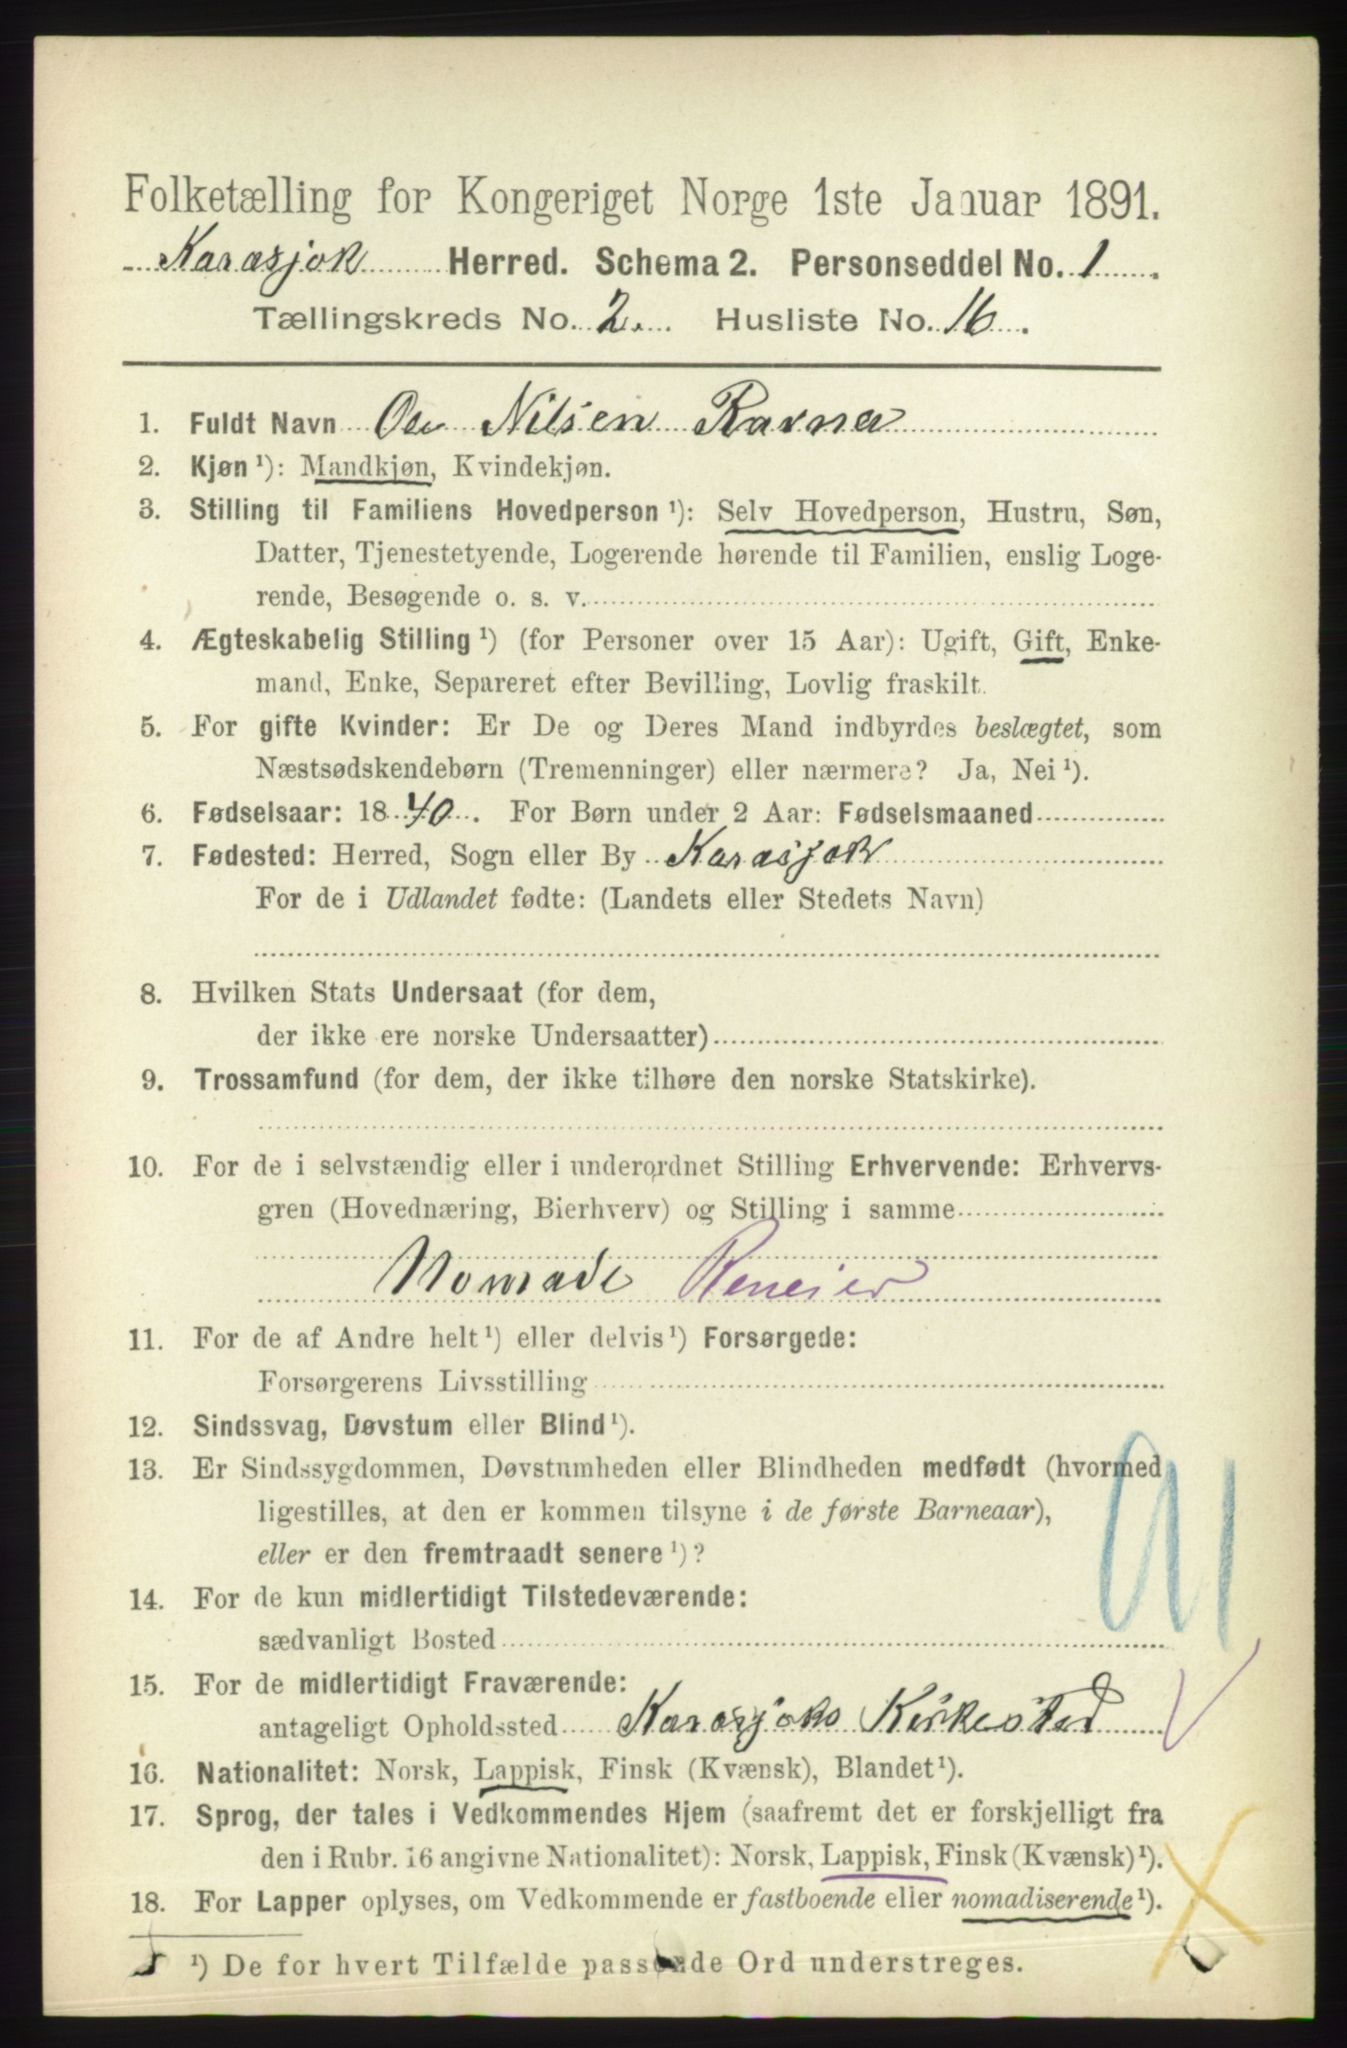 Folketælling for Kongeriget Norge 1ste Januar 1891.
Karasjok Herred. Schema 2. Personseddel No. 1.
Tællingskreds No. 2. Husliste No. 16.
1. Fuldt Navn Ole Nilsen Ravna
2. Kjøn ¹): Mandkjøn, Kvindekjøn.
3. Stilling til Familiens Hovedperson ¹): Selv Hovedperson, Hustru, Søn,
Datter, Tjenestetyende, Logerende hørende til Familien, enslig Loge-
rende, Besøgende o. s. v.
4. Ægteskabelig Stilling ¹) (for Personer over 15 Aar): Ugift, Gift, Enke-
mand, Enke, Separeret efter Bevilling, Lovlig fraskilt.
5. For gifte Kvinder: Er De og Deres Mand indbyrdes beslægtet, som
Næstsødskendebørn (Tremenninger) eller nærmere? Ja, Nei ¹).
6. Fødselsaar: 1840. For Børn under 2 Aar: Fødselsmaaned
7. Fødested: Herred, Sogn eller By Karasjok
For de i Udlandet fødte: (Landets eller Stedets Navn)
8. Hvilken Stats Undersaat (for dem,
der ikke ere norske Undersaatter)
9. Trossamfund (for dem, der ikke tilhøre den norske Statskirke).
10. For de i selvstændig eller i underordnet Stilling Erhvervende: Erhvervs-
gren (Hovednæring, Bierhverv) og Stilling i samme
Nomade Reneier
11. For de af Andre helt ¹) eller delvis ¹) Forsørgede:
Forsørgerens Livsstilling
12. Sindssvag, Døvstum eller Blind ¹).
13. Er Sindssygdommen, Døvstumheden eller Blindheden medfødt (hvormed
ligestilles, at den er kommen tilsyne i de første Barneaar),
eller er den fremtraadt senere ¹)?
14. For de kun midlertidigt Tilstedeværende:
sædvanligt Bosted
15. For de midlertidigt Fraværende:
antageligt Opholdssted Karasjoks Kirkested
16. Nationalitet: Norsk, Lappisk, Finsk (Kvænsk), Blandet ¹).
17. Sprog, der tales i Vedkommendes Hjem (saafremt det er forskjelligt fra
den i Rubr. 16 angivne Nationalitet): Norsk, Lappisk, Finsk (Kvænsk) ¹).
18. For Lapper oplyses, om Vedkommende er fastboende eller nomadiserende ¹).
¹) De for hvert Tilfælde passende Ord understreges.